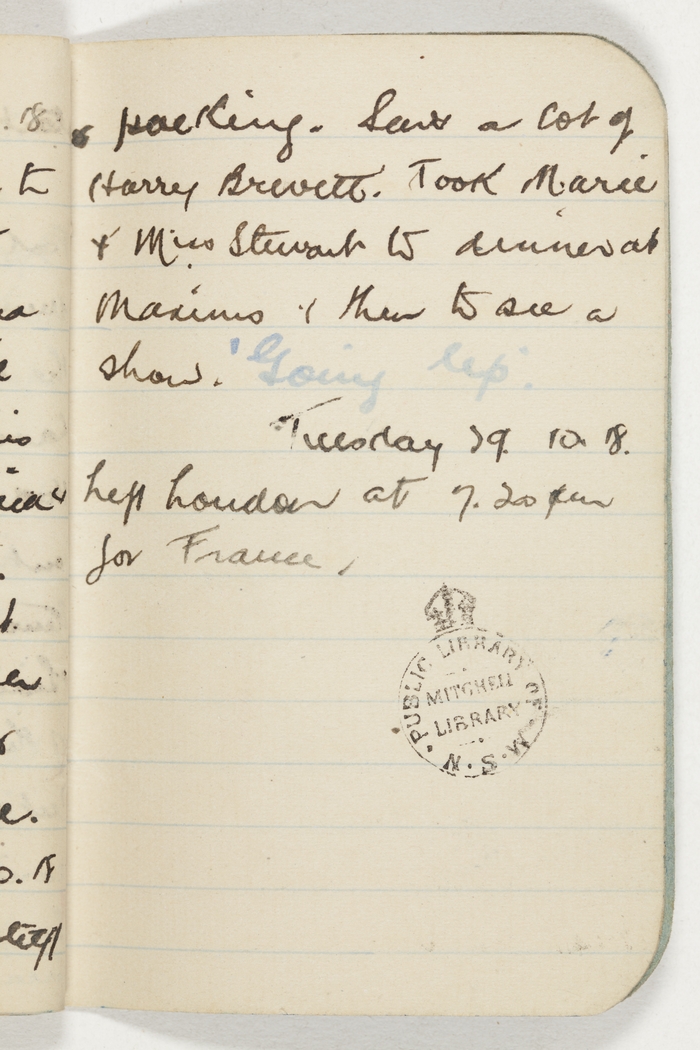 & packing. Saw a lot of
Harry Brevett. Took Marie
& Miss Stewart to dinner at
Maxims & then to see a
show. 'Going Up'.
Tuesday 29. 10. 18.
Left London at 7.20 pm
for France,
PUBLIC LIBRARY OF N.S.W.
MITCHELL
LIBRARY